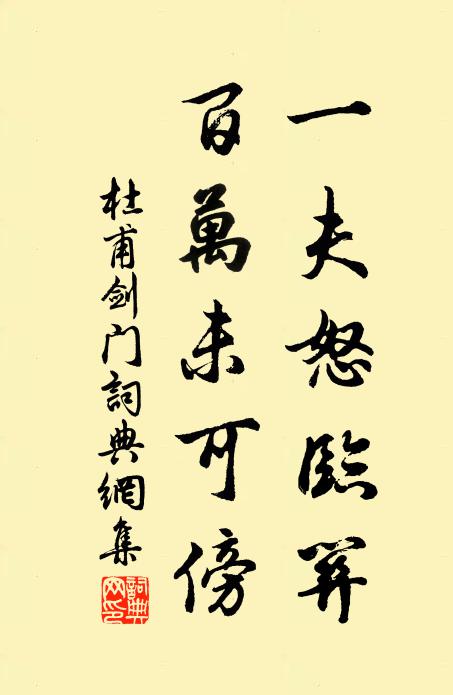 一夫怒臨關
百萬未可傍
杜甫剑门詞典網集
詞典网印